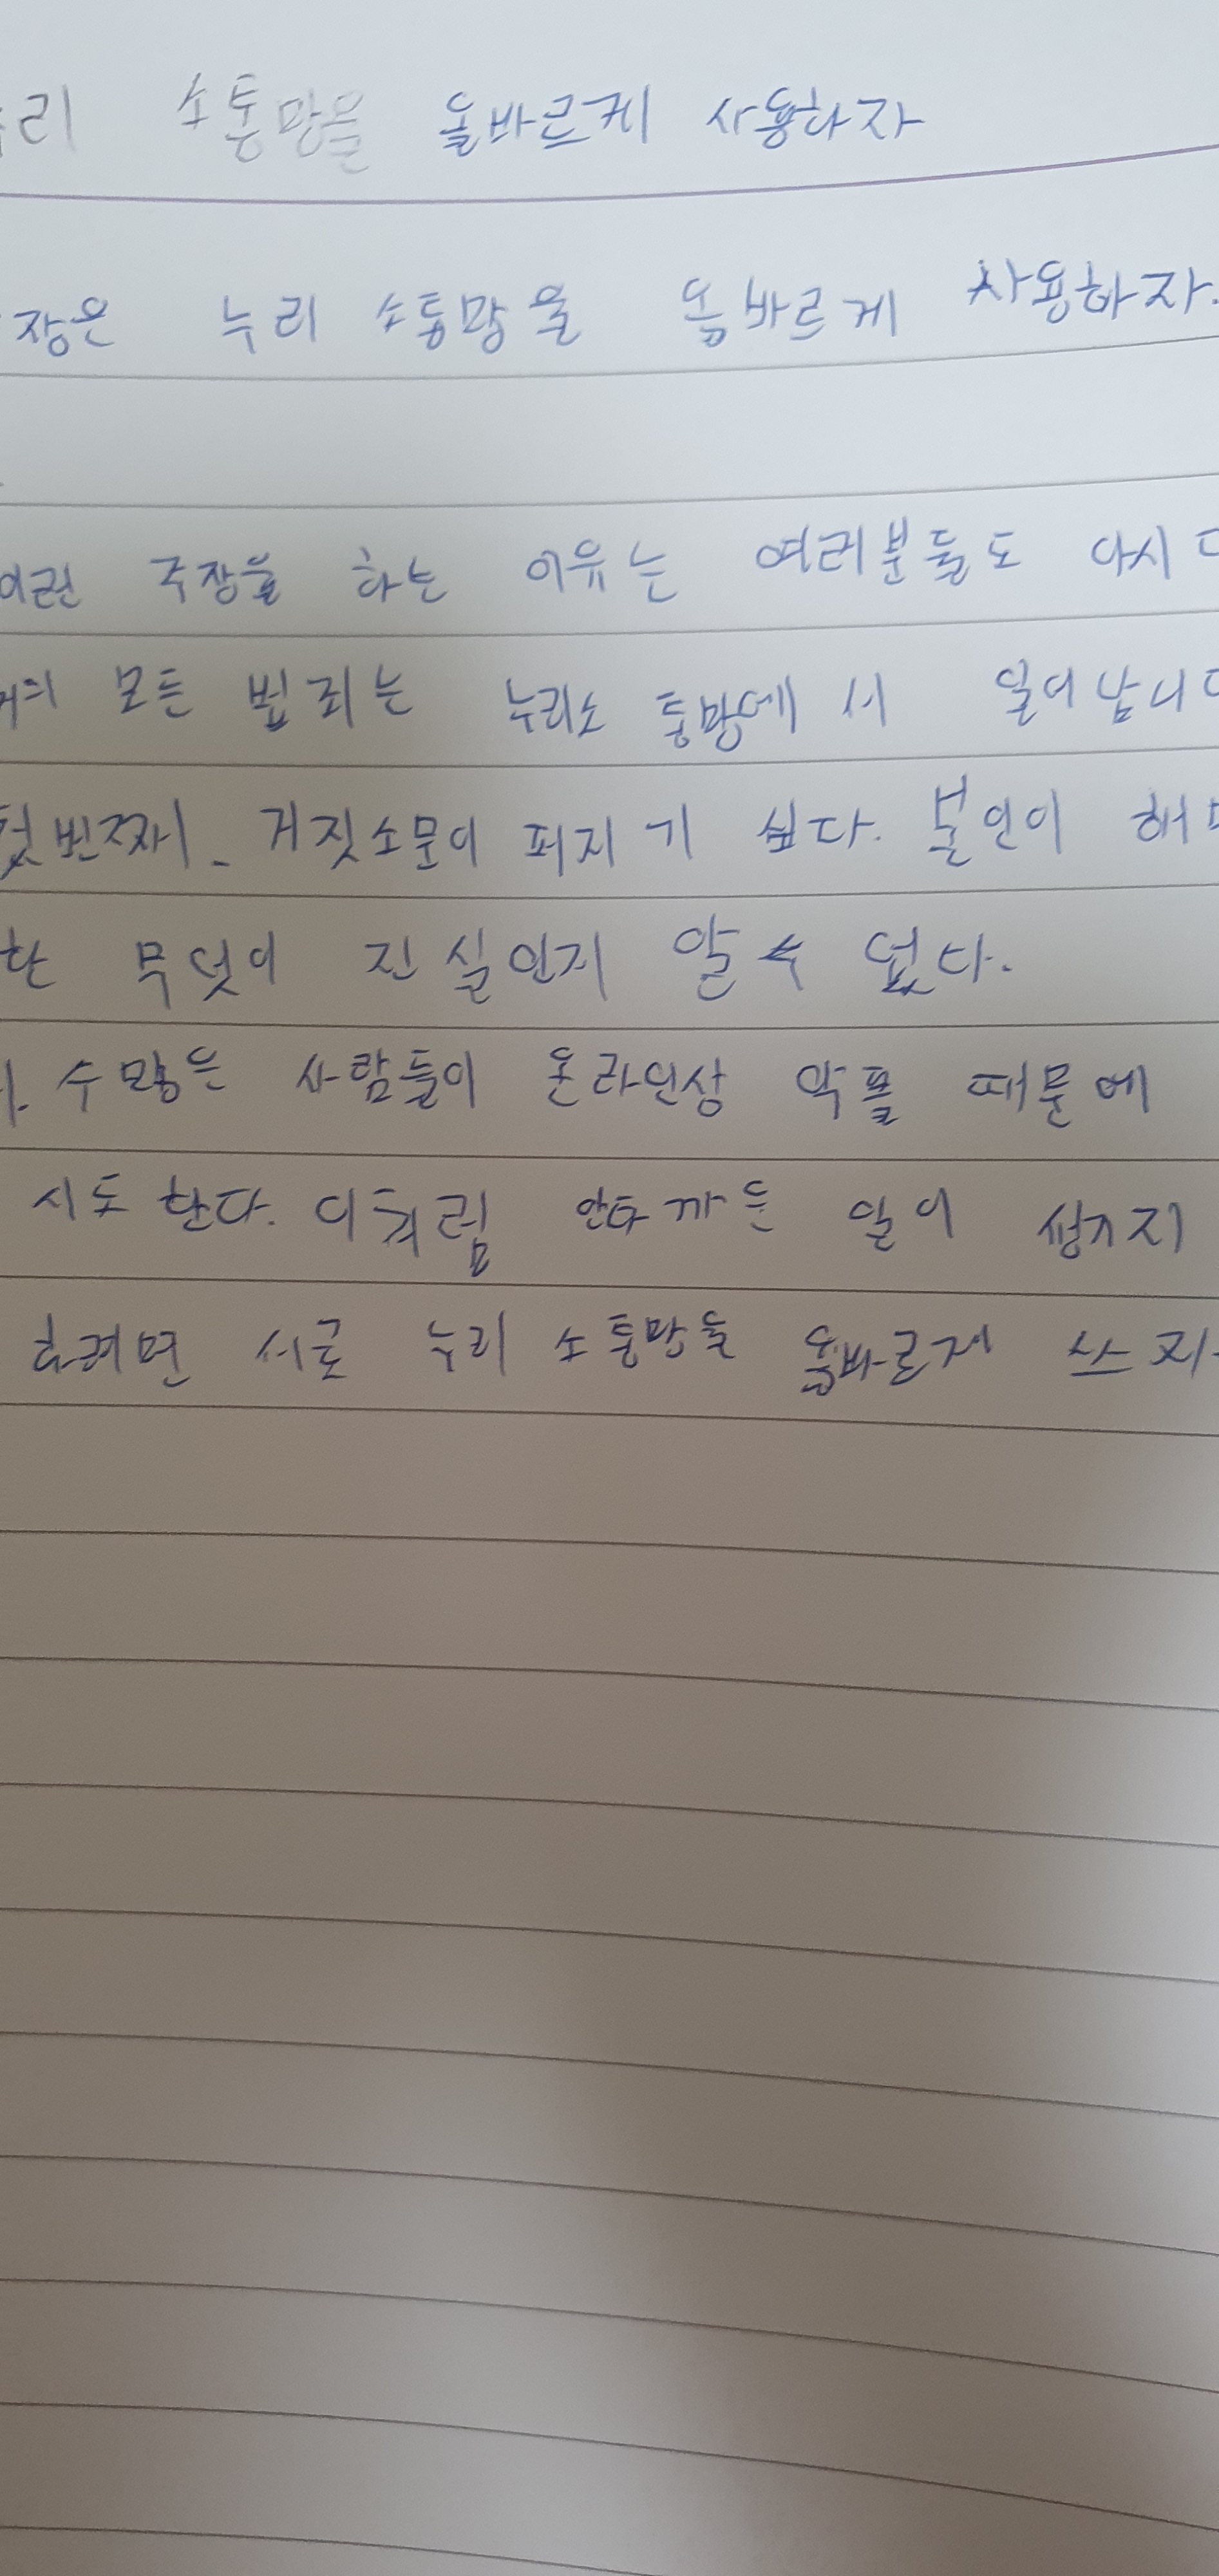 누리 소통망을 올바르게 사용하자
장은 누리 소통망을 올바르게 사용하자.
이런 주장을 하는 이유는 여러분들도 다시
모든 범죄는 누리소 통망에 서 일어납니다
첫번째. 거짓소문이 퍼지기 쉽다. 본인이
한 무엇이 진실인지 알수 없다.
수많은 사람들이 온라인상 악플 때문에
시도 한다. 이처럼 안타까운 일이 생기지
하려면 서로 누리 소통망을 올바르게 쓰자